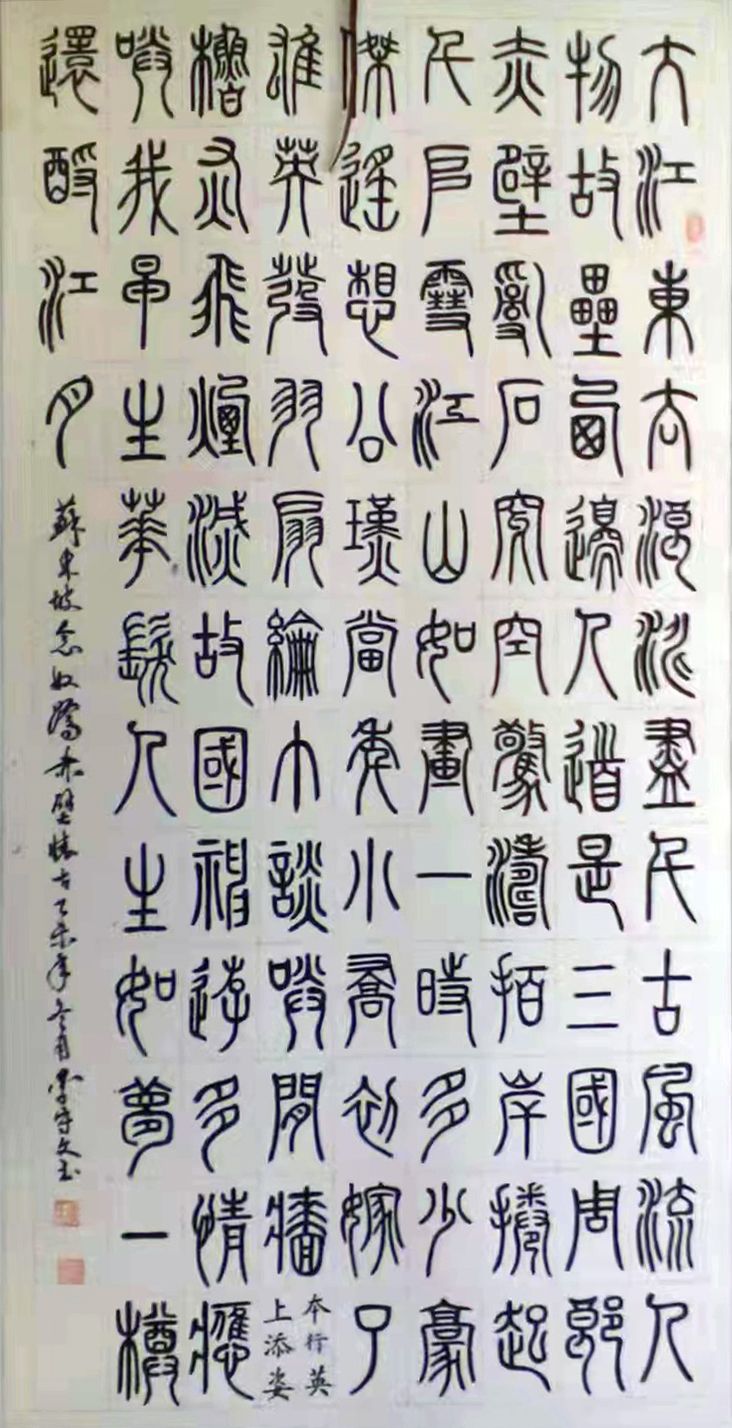 大江東去浪淘盡千古風流人
物故壘西邊人道是三國周郎
赤壁亂石穿空驚濤拍岸捲起
千堆雪江山如畫一時多少豪
傑遙想公瑾當年小喬初嫁了
雄英發羽扇綸巾談笑間牆
本行英
上添姿
櫓灰飛煙滅故國神遊多情應
笑我早生華髮人生如夢一樽
還酹江月
蘇東坡念奴嬌赤壁懷古乙未年冬月李守文書